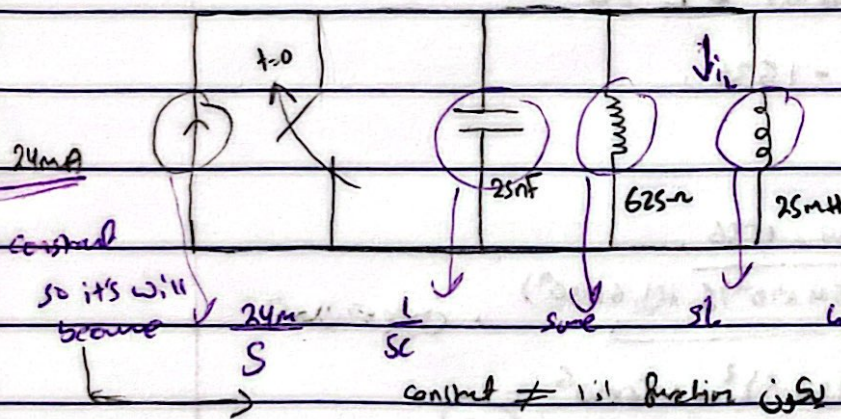 t=0
iL
24mA
25nF
625Ω
25mH
constant
so it's will
become
24m/S
1/SC
same
SL
constant ≠ function يكون